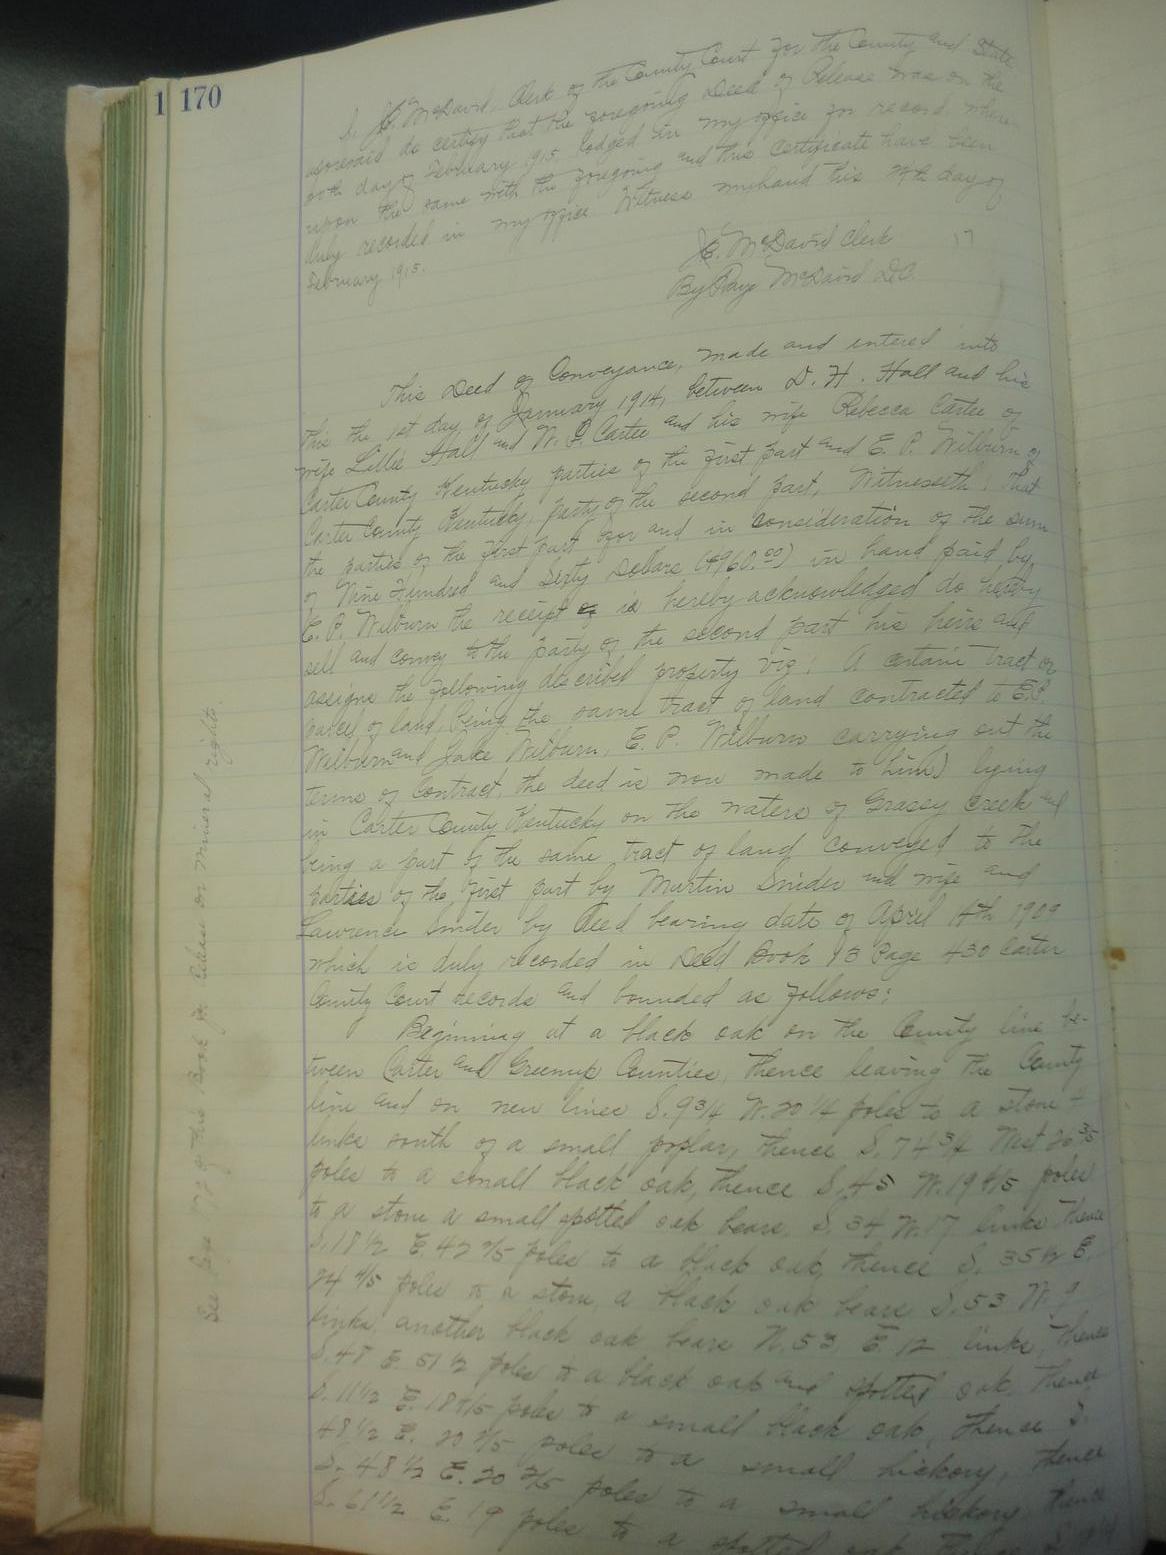 1 170
I, J.C. McDavid, Clerk of the County Court for the County and State
aforesaid do certify that the foregoing Deed of Release was on the
day of February 1915, lodged in my office for record where
upon the same with the foregoing and this certificate have been
duly recorded in my office. Witness my hand this day of
February 1915.
McDavid Clerk
By McDavid D.C.
This Deed of Conveyance, made and entered into
this the 1st day of January 1914, between D. H. Hall and his
wife Lillie Hall and W. P. Cartee and his wife Rebecca Cartee of
Carter County Kentucky parties of the first part and E. P. Wilburn of
Carter County Kentucky, party of the second part, Witnesseth: That
the parties of the first part for and in consideration of the sum
of Nine Hundred and Sixty Dollars ($960.00) in hand paid by
E. P. Wilburn the receipt of is hereby acknowledged do hereby
sell and convey to the party of the second part his heirs and
assigns the following described property viz: A certain tract or
parcel of land, being the same tract of land contracted to E.P.
Wilburn and Jake Wilburn, E. P. Wilburn carrying out the
terms of Contract, the deed is now made to him) lying
in Carter County Kentucky on the waters of Grassy Creek and
being a part of the same tract of land conveyed to the
parties of the first part by Martin Snider and wife and
Lawrence Snider by deed bearing date of April 14th 1909
which is duly recorded in Deed Book Page 430 Carter
County Court records and bounded as follows:
Beginning at a black oak on the County line be-
tween Carter and Greenup Counties, thence leaving the County
line and on new lines S. 9 3/4 W. 20 1/4 poles to a stone
links south of a small poplar, thence S. 74 3/4 West
poles to a small black oak, thence S. 45 W. 19 4/5 poles
to a stone a small spotted oak bears S. 34 W. 17 links thence
S. 18 1/2 E. 42 2/5 poles to a black oak, thence S. 35 1/2 E.
24 4/5 poles to a stone, a black oak bears S. 53 W. 9
links, another black oak bears N. 53 E. 12 links, thence
S. 48 E. 51 1/2 poles to a black oak and spotted oak, thence
S. 11 1/2 E. 18 4/5 poles to a small black oak, thence S.
48 1/2 E. 20 2/5 poles to a small hickory, thence
S. 48 1/2 E. 20 2/5 poles to a small hickory thence
S. 61 1/2 E. 19 poles to a spotted oak thence
See Page 177 of this Book for Release on mineral rights